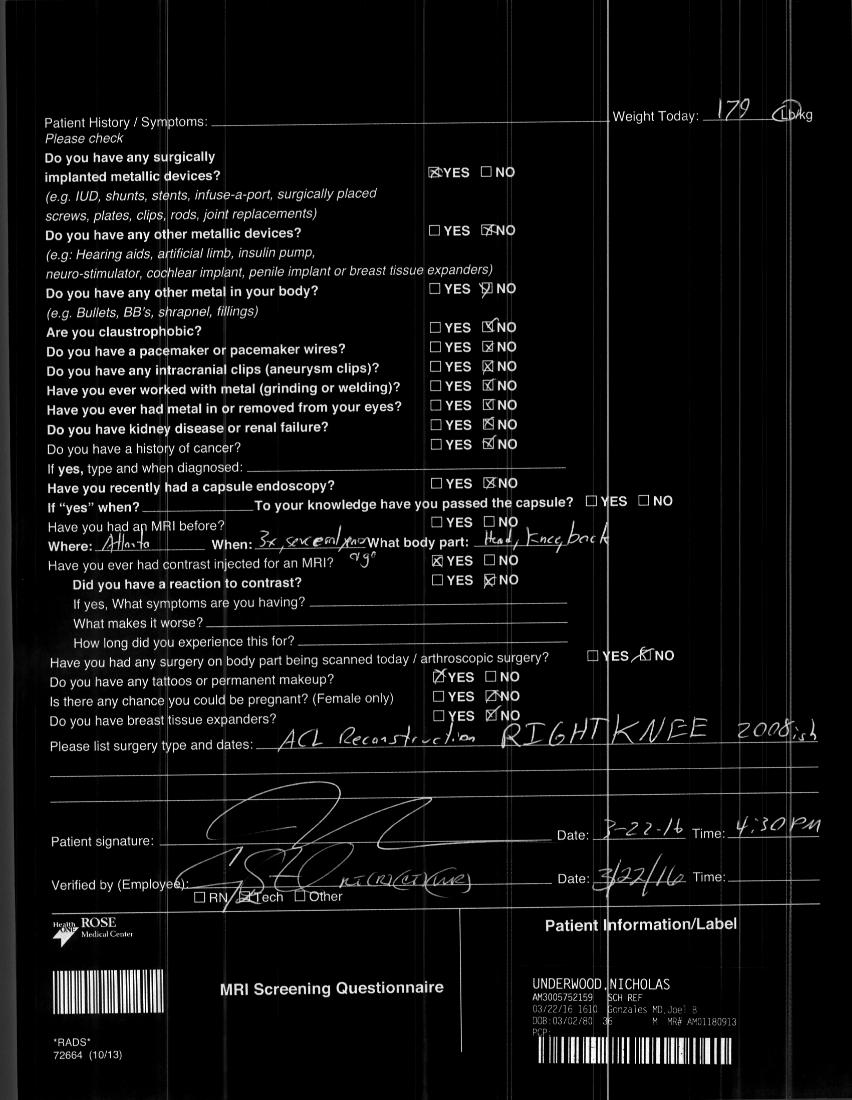 Patient History / Symptoms: Weight Today: 179 Lb/kg
Please check
Do you have any surgically
implanted metallic devices? ☒YES ☐NO
(e.g. IUD, shunts, stents, infuse-a-port, surgically placed
screws, plates, clips, rods, joint replacements)
Do you have any other metallic devices? ☐YES ☒NO
(e.g: Hearing aids, artificial limb, insulin pump,
neuro-stimulator, cochlear implant, penile implant or breast tissue expanders)
Do you have any other metal in your body? ☐YES ☒NO
(e.g. Bullets, BB's, shrapnel, fillings)
Are you claustrophobic? ☐YES ☒NO
Do you have a pacemaker or pacemaker wires? ☐YES ☒NO
Do you have any intracranial clips (aneurysm clips)? ☐YES ☒NO
Have you ever worked with metal (grinding or welding)? ☐YES ☒NO
Have you ever had metal in or removed from your eyes? ☐YES ☒NO
Do you have kidney disease or renal failure? ☐YES ☒NO
Do you have a history of cancer? ☐YES ☒NO
If yes, type and when diagnosed:
Have you recently had a capsule endoscopy? ☐YES ☒NO
If "yes" when? To your knowledge have you passed the capsule? ☐YES ☐NO
Have you had an MRI before? ☐YES ☐NO
Where: Atlanta When: 3x, several years ago What body part: Head, Knee, back
Have you ever had contrast injected for an MRI? ☒YES ☐NO
Did you have a reaction to contrast? ☐YES ☒NO
If yes, What symptoms are you having?
What makes it worse?
How long did you experience this for?
Have you had any surgery on body part being scanned today / arthroscopic surgery? ☐YES ☒NO
Do you have any tattoos or permanent makeup? ☒YES ☐NO
Is there any chance you could be pregnant? (Female only) ☐YES ☒NO
Do you have breast tissue expanders? ☐YES ☒NO
Please list surgery type and dates: ACL Reconstruction RIGHT KNEE 2008ish
Patient signature: Date: 3-22-16 Time: 4:30 PM
Verified by (Employee): RT(R)(CT)(MR) Date: 3/22/16 Time:
☐RN ☒Tech ☐Other
HealthONE ROSE
Medical Center
MRI Screening Questionnaire
*RADS*
72664 (10/13)
Patient Information/Label
UNDERWOOD,NICHOLAS
AM3005752159 SCH REF
03/22/16 1610 Gonzales MD,Joel B
DOB:03/02/80 36 M MR# AM01180913
PCP: